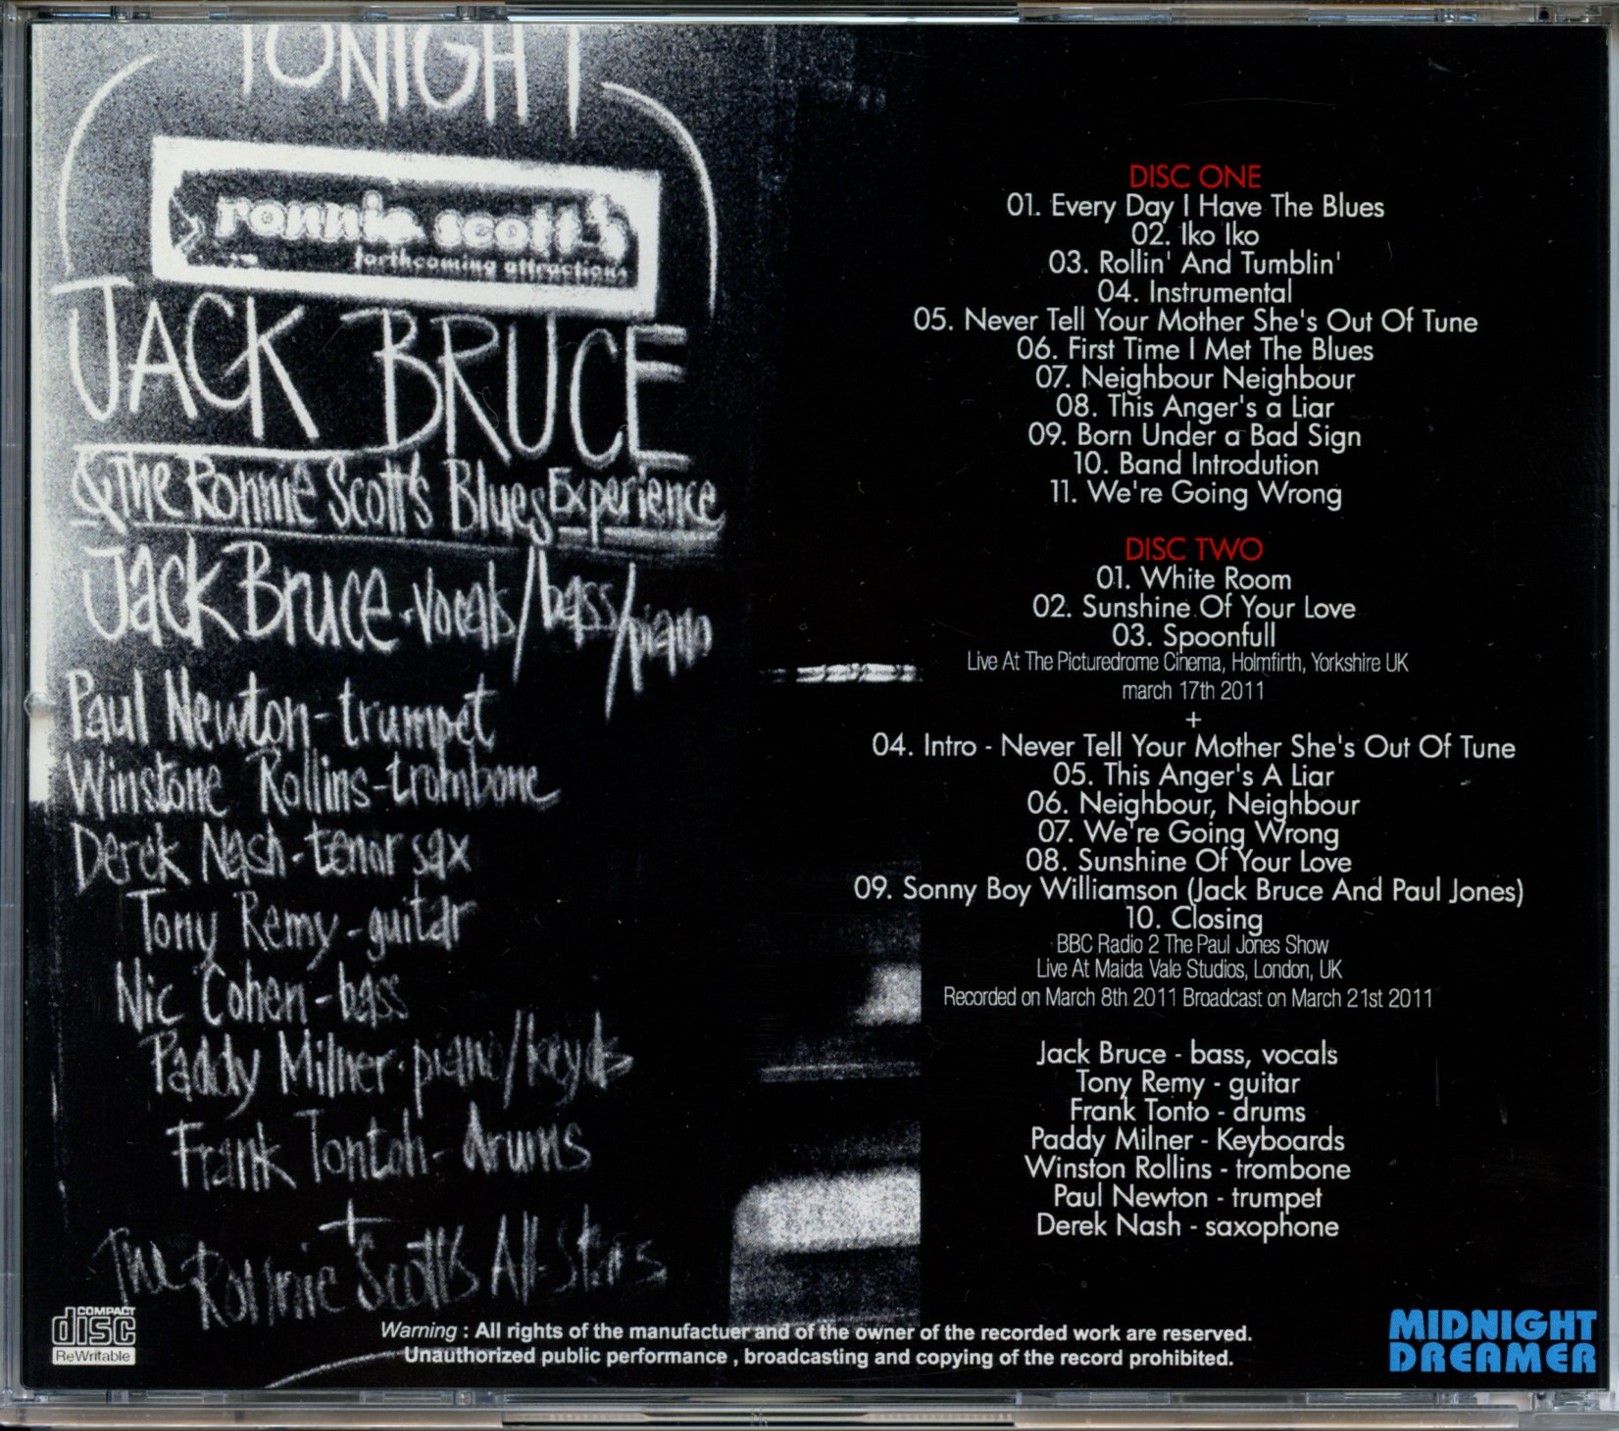 TONIGHT
ronnie scott's
forthcoming attractions
JACK BRUCE
& The Ronnie Scott's Blues Experience
Jack Bruce - vocals/bass/piano
Paul Newton - trumpet
Winstone Rollins - trombone
Derek Nash - tenor sax
Tony Remy - guitar
Nic Cohen - bass
Paddy Milner - piano/keyds
Frank Tontoh - drums
+
The Ronnie Scott's All-Stars
DISC ONE
01. Every Day I Have The Blues
02. Iko Iko
03. Rollin' And Tumblin'
04. Instrumental
05. Never Tell Your Mother She's Out Of Tune
06. First Time I Met The Blues
07. Neighbour Neighbour
08. This Anger's a Liar
09. Born Under a Bad Sign
10. Band Introdution
11. We're Going Wrong
DISC TWO
01. White Room
02. Sunshine Of Your Love
03. Spoonfull
Live At The Picturedrome Cinema, Holmfirth, Yorkshire UK
march 17th 2011
+
04. Intro - Never Tell Your Mother She's Out Of Tune
05. This Anger's A Liar
06. Neighbour, Neighbour
07. We're Going Wrong
08. Sunshine Of Your Love
09. Sonny Boy Williamson (Jack Bruce And Paul Jones)
10. Closing
BBC Radio 2 The Paul Jones Show
Live At Maida Vale Studios, London, UK
Recorded on March 8th 2011 Broadcast on March 21st 2011
Jack Bruce - bass, vocals
Tony Remy - guitar
Frank Tonto - drums
Paddy Milner - Keyboards
Winston Rollins - trombone
Paul Newton - trumpet
Derek Nash - saxophone
COMPACT
disc
ReWritable
Warning : All rights of the manufactuer and of the owner of the recorded work are reserved.
Unauthorized public performance , broadcasting and copying of the record prohibited.
MIDNIGHT
DREAMER